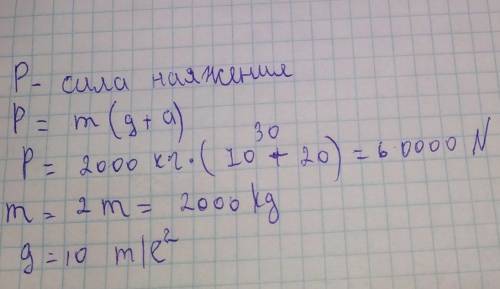 P - сила наяжения
P = m (g + a)
30
P = 2000 кг · (10 + 20) = 60000 N
m = 2 m = 2000 kg
g = 10 m/c²